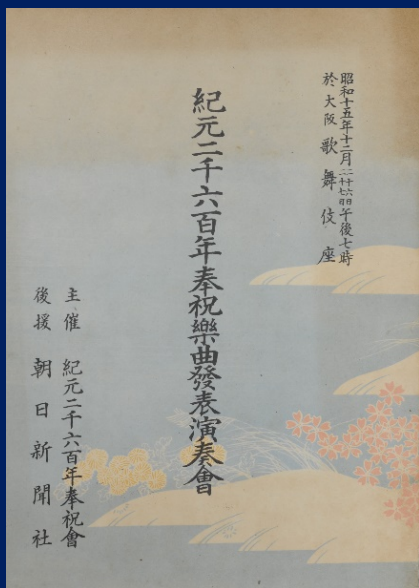 昭和十五年十二月二十六日二十七日午後七時
於大阪歌舞伎座
紀元二千六百年奉祝樂曲發表演奏會
主催 紀元二千六百年奉祝會
後援 朝日新聞社